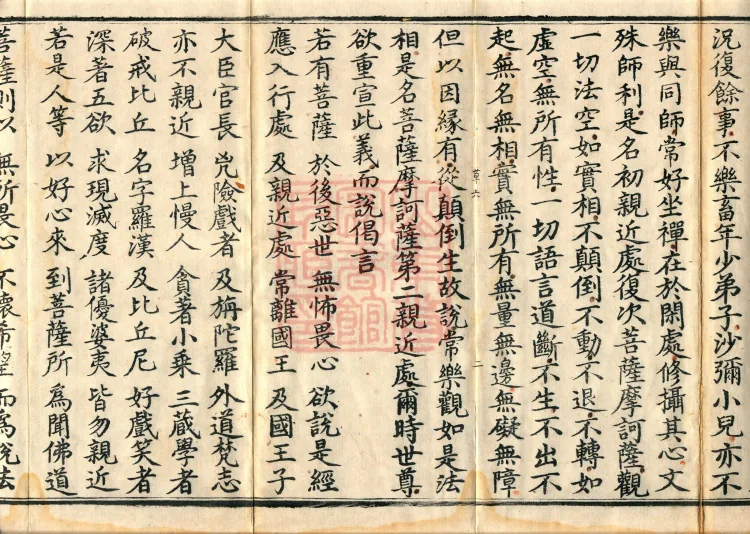 況復餘事不樂畜年少弟子沙彌小兒亦不
樂與同師常好坐禪在於閑處修攝其心文
殊師利是名初親近處復次菩薩摩訶薩觀
一切法空如實相不顛倒不動不退不轉如
虛空無所有性一切語言道斷不生不出不
起無名無相實無所有無量無邊無礙無障
草六
二
但以因緣有從顛倒生故說常樂觀如是法
相是名菩薩摩訶薩第二親近處爾時世尊
欲重宣此義而說偈言
若有菩薩 於後惡世 無怖畏心 欲說是經
應入行處 及親近處 常離國王 及國王子
大臣官長 兇險戲者 及旃陀羅 外道梵志
亦不親近 增上慢人 貪著小乘 三蔵學者
破戒比丘 名字羅漢 及比丘尼 好戲笑者
深著五欲 求現滅度 諸優婆夷 皆勿親近
若是人等 以好心來 到菩薩所 為聞佛道
菩薩則以 無所畏心 不懷希望 而為說法